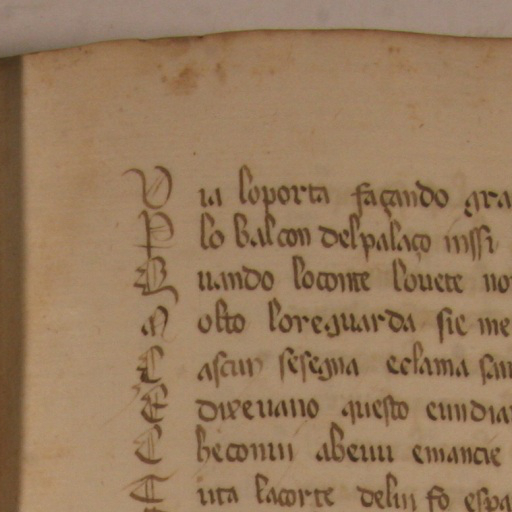 V ia loporta façando gra
P lo balcon delpalaço inssi
Q uando loconte louete no
M olto loreguarda sie me
C ascun sesegna eclama san
E dixeuano questo eundia
C heconui abeuu emancie
T uta lacorte delui fo espa